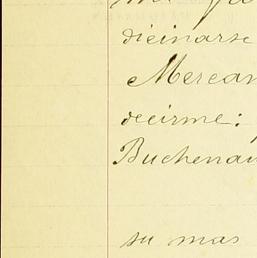 dicinarse
Mercan
decirme:
Buchenau
su mas